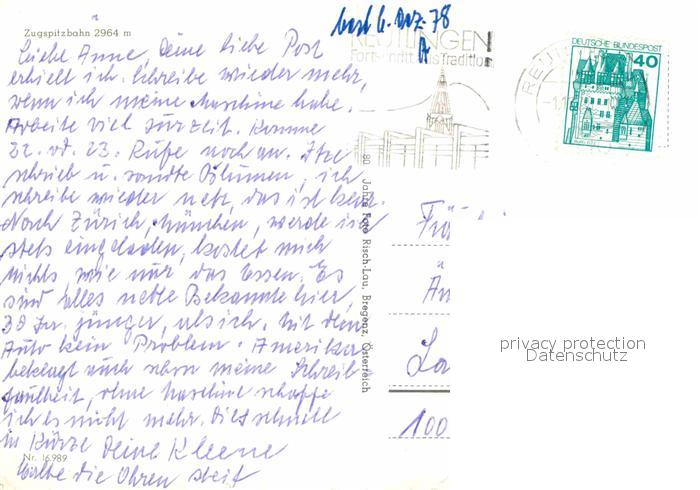 Zugspitzbahn 2964 m
REUTLINGEN
Fortschritt aus Tradition
REU
DEUTSCHE BUNDESPOST
40
Liebe Anne, Deine liebe Post
erhielt ich. Schreibe wieder mehr,
wenn ich meine Maschine habe.
Arbeite viel zur Zeit. Komme
22. od. 23. Rufe noch an.
schrieb u. sandte Blumen, ich
schreibe wieder nett, das ist
Nach Zürich, München, werde ich
stets eingeladen, kostet mich
nichts wie nur das Essen. Es
sind alles nette Bekannte hier,
30 Jr. jünger, als ich. Mit dem
Auto kein Problem. Amerika
beklagt auch schon meine Schreib
faulheit, ohne Maschine schaffe
ich es nicht mehr. Dies schnell
in Kürze Deine Kleene
Halte die Ohren steif
Nr. 16.989
80 Jahre Foto Risch-Lau, Bregenz, Österreich
Frä
An
La
100
privacy protection
Datenschutz